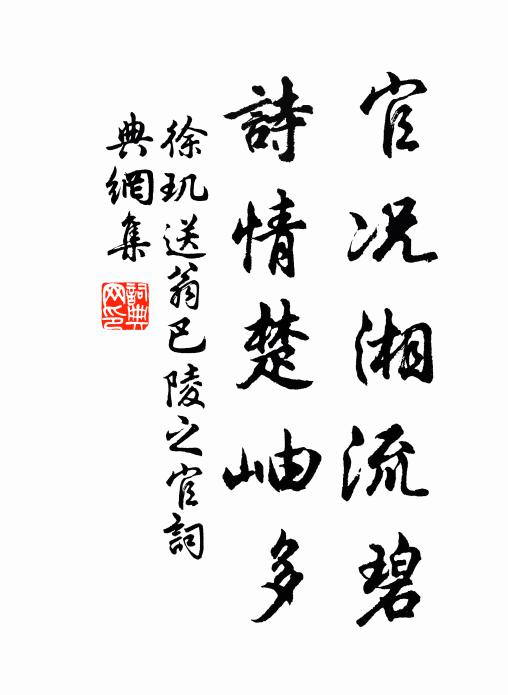 官况湘流碧
詩情楚岫多
徐玑送翁巴陵之官詞
典網集
詞典
网印